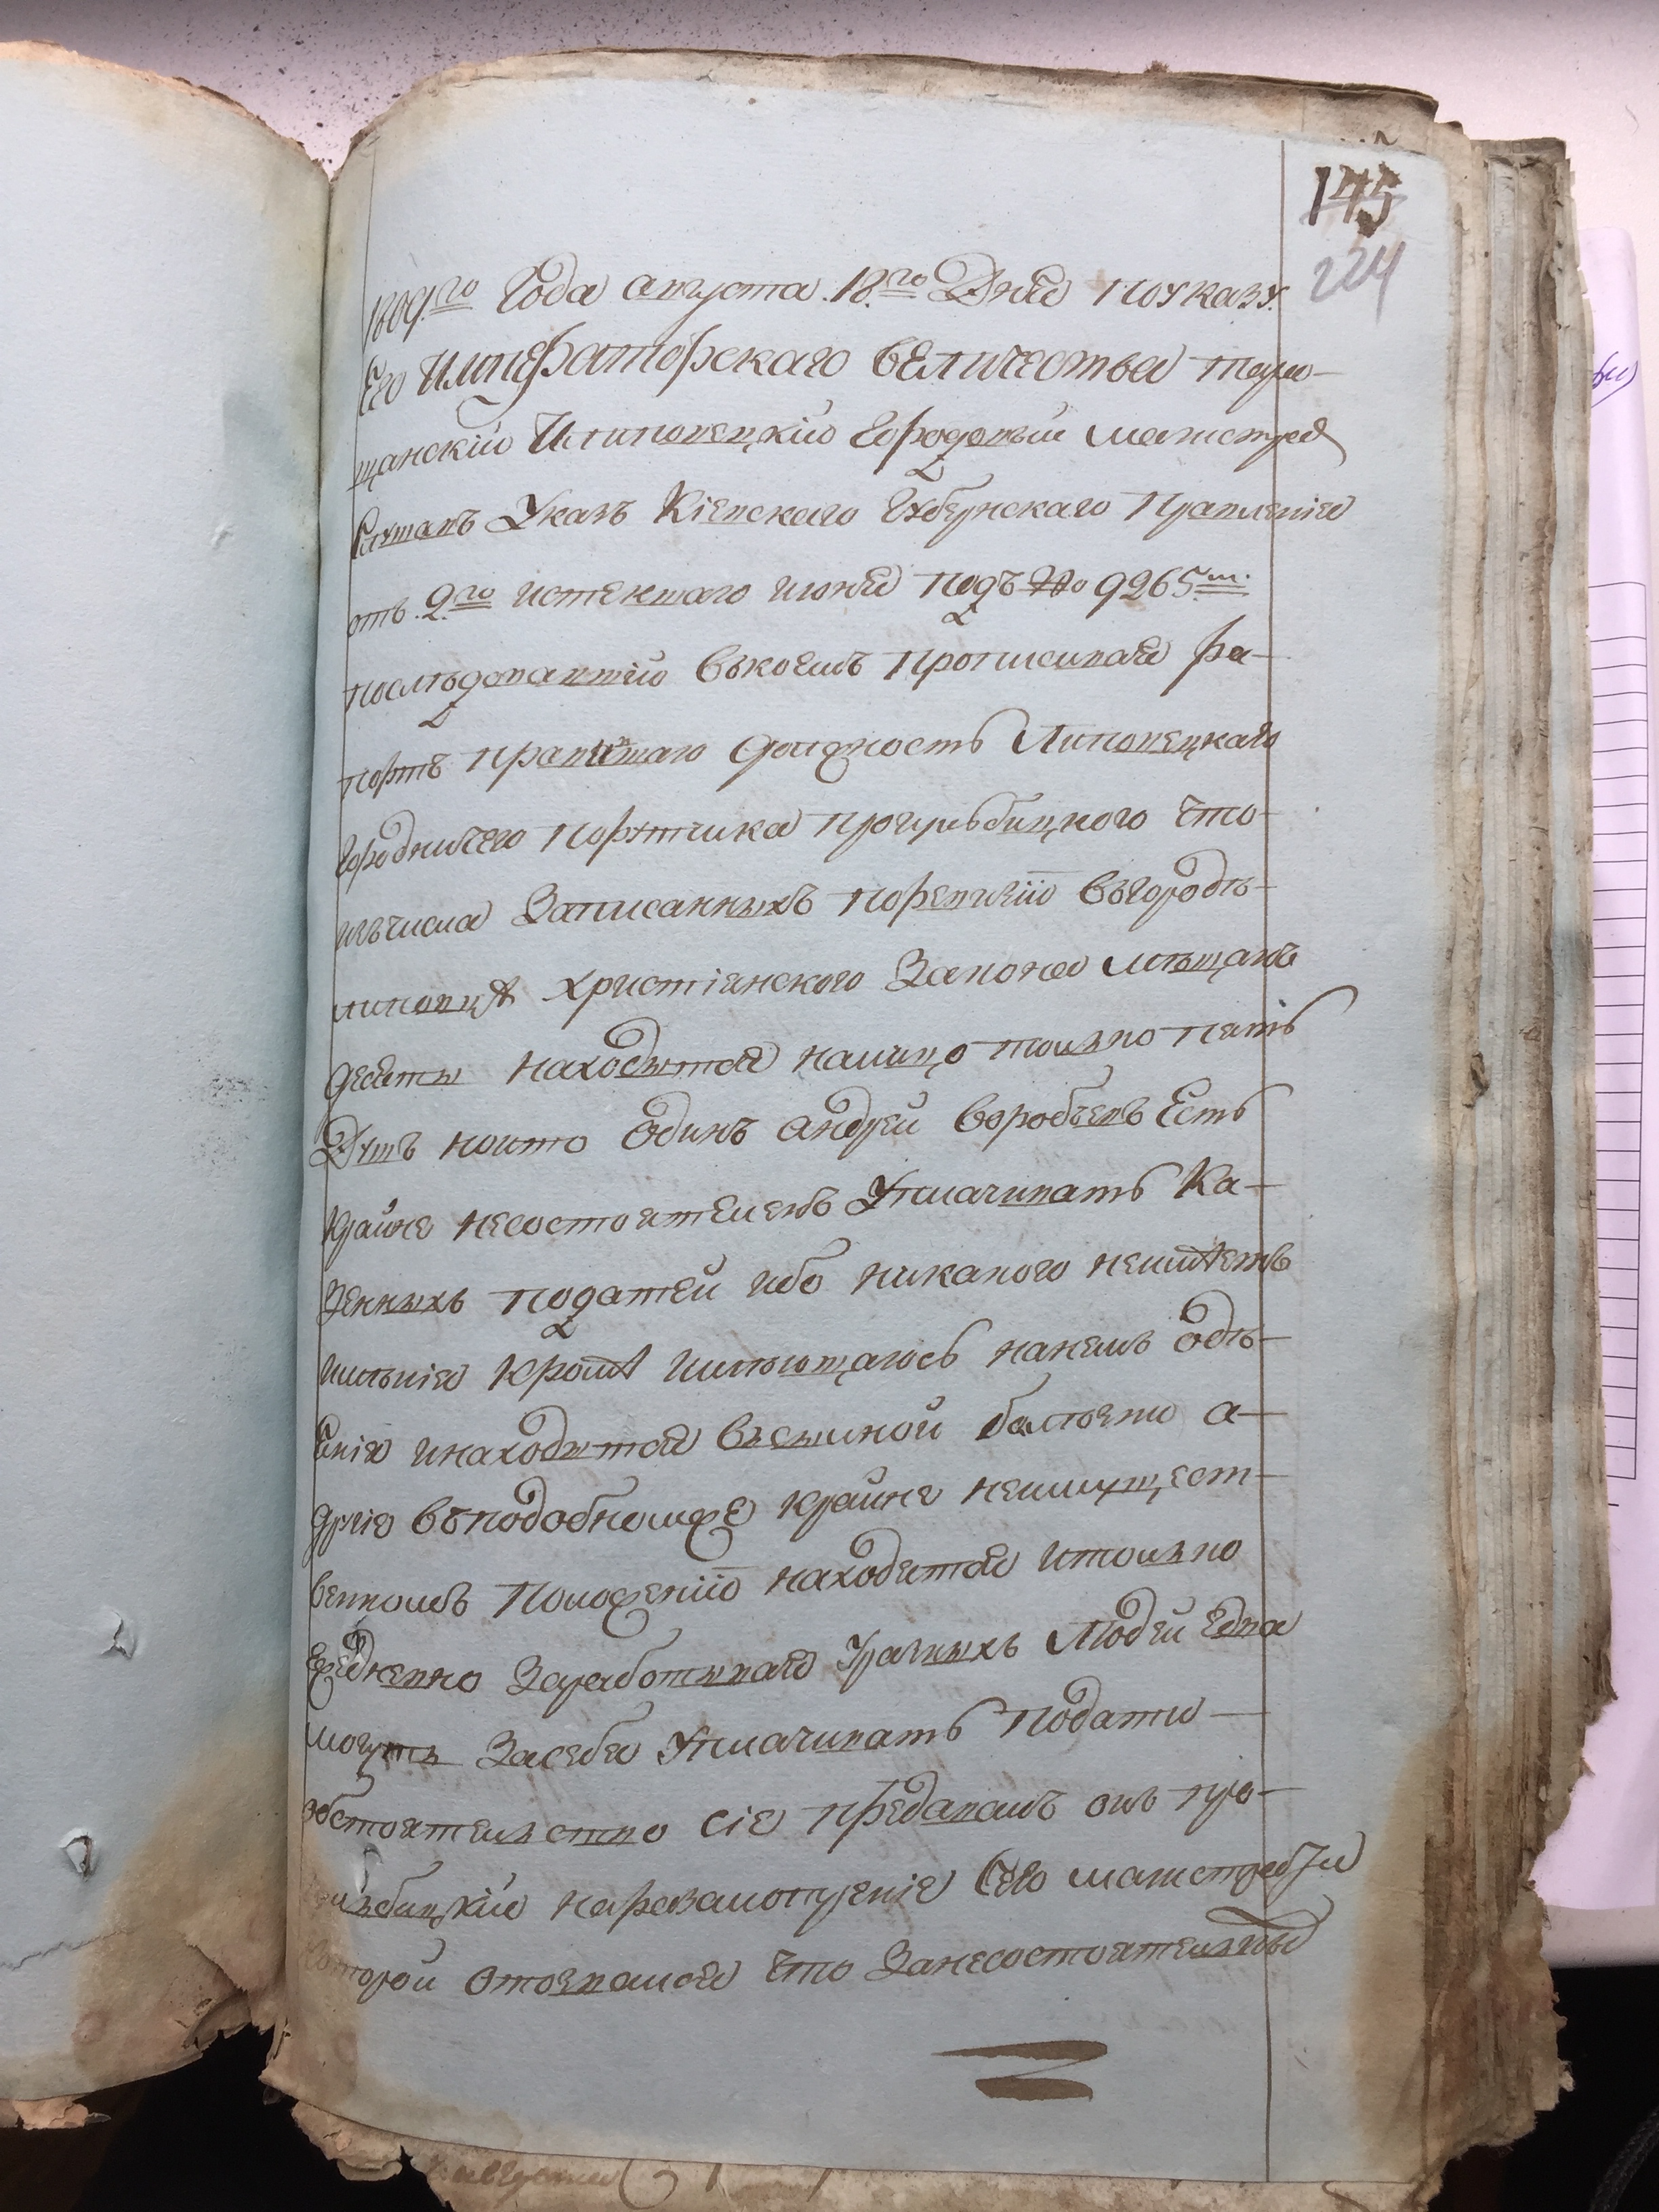 145
224
1809.го Года августа 18.го Дня поуказу
Его Императорскаго величества тара-
щанскій Илиповецкій Городовый магистрат
Слушавъ Указъ Кіевскаго Губернскаго Правленія
отъ 2.го истекшаго июня подъ No 9265м.
последовавшій въкоемъ прописывая ра-
портъ правящаго должность Липовецкаго
Городничего порутчика прогульбицкого что
изъчисла записанныхъ поревизіи въгороде
липовце христіянского закона мещанъ
десять находятся налицо только пять
Душъ коихто одинъ андрей воробьевъ Есть
крайне несостоятеленъ уплачивать Ка-
зенныхъ податей ибо никакого неимеетъ
именія кроме имеющагось нанемъ оде-
янія инаходится въсилной болезни а-
другіе въподобномже крайне неимущест-
венномъ положеніи находятся итолько
вседневно заработывая уразныхъ людей едва
могутъ засебя уплачивать подати
обстоятельство сіе предавалъ онъ про-
гульбицкій наразсмотреніе Сего магистрата и
которой отозвался что занесостоятельных